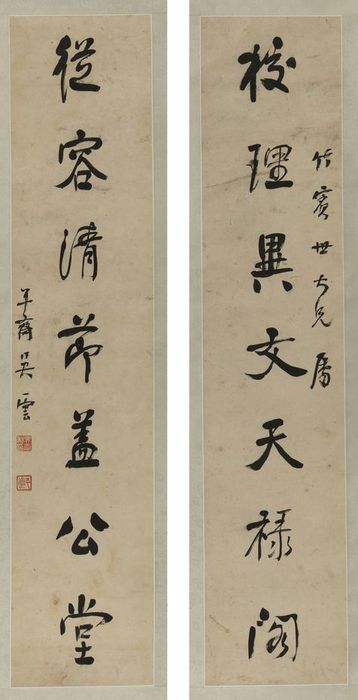 校理異文天祿閣
竹賓世大兄屬
從容清節蓋公堂
平齋吳雲